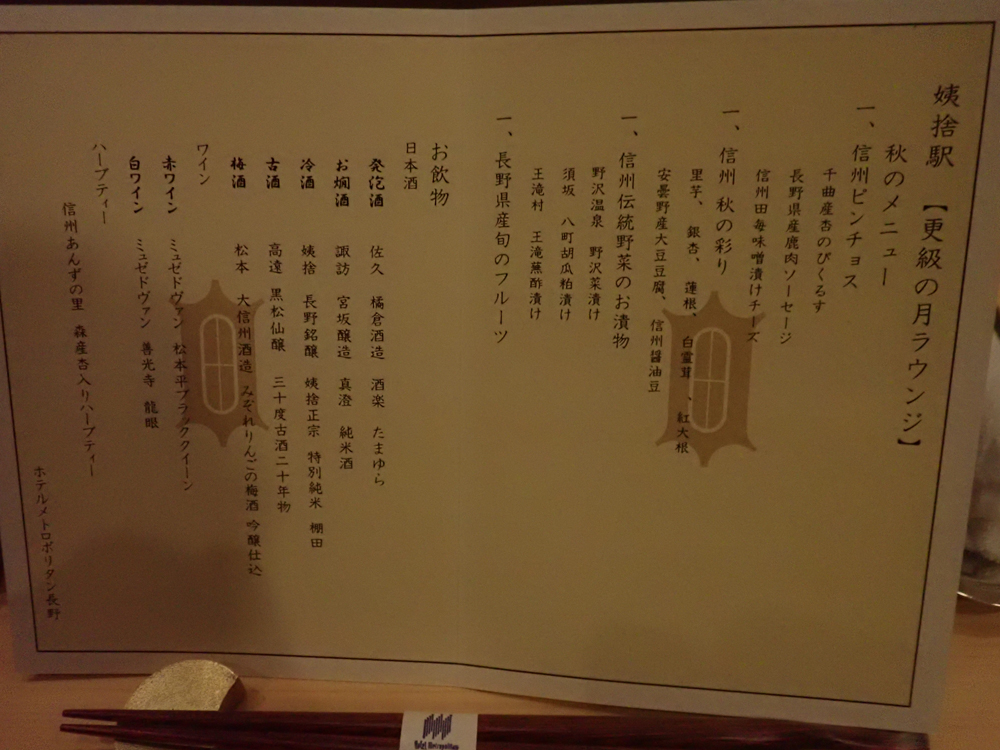 姨捨駅 【更級の月ラウンジ】
秋のメニュー
一、信州ピンチョス
千曲産杏のぴくるす
長野県産鹿肉ソーセージ
信州田毎味噌漬けチーズ
一、信州 秋の彩り
里芋、銀杏、蓮根、白霊茸、紅大根
安曇野産大豆豆腐、信州醤油豆
一、信州伝統野菜のお漬物
野沢温泉 野沢菜漬け
須坂 八町胡瓜粕漬け
王滝村 王滝蕪酢漬け
一、長野県産旬のフルーツ
お飲物
日本酒
発泡酒 佐久 橘倉酒造 酒楽 たまゆら
お燗酒 諏訪 宮坂醸造 真澄 純米酒
冷酒 姨捨 長野銘醸 姨捨正宗 特別純米 棚田
古酒 高遠 黒松仙醸 三十度古酒二十年物
梅酒 松本 大信州酒造 みぞれりんごの梅酒 吟醸仕込
ワイン
赤ワイン ミュゼドヴァン 松本平ブラッククイーン
白ワイン ミュゼドヴァン 善光寺 龍眼
ハーブティー
信州あんずの里 森産杏入りハーブティー
ホテルメトロポリタン長野
Hotel Metropolitan